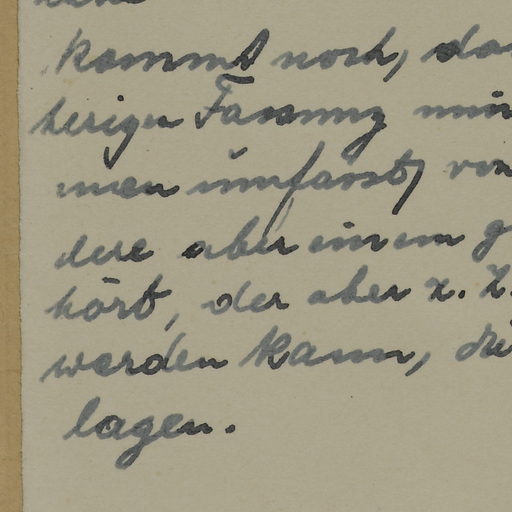 kommt noch, da
heriger Fassung nur
men umfasst, von
dere aber einem g
hört, der aber z. Z.
werden kann, die
lagen.